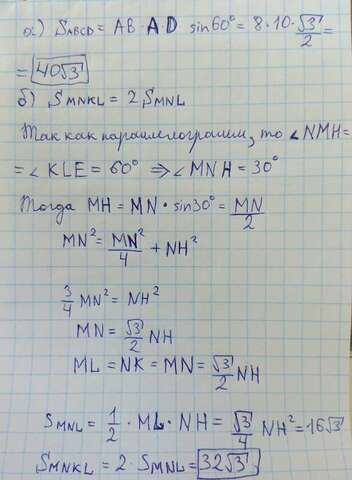 а) S_ABCD = AB · A·D sin60° = 8·10·√3/2 =
= 40√3
б) S_MNKL = 2 S_MNL
Так как параллелограмм, то ∠NMH =
= ∠KLE = 60° ⇒ ∠MNH = 30°
Тогда MH = MN · sin30° = MN/2
MN² = MN²/4 + NH²
3/4 MN² = NH²
MN = √3/2 NH
ML = NK = MN = √3/2 NH
S_MNL = 1/2 · ML · NH = √3/4 NH² = 16√3
S_MNKL = 2 · S_MNL = 32√3